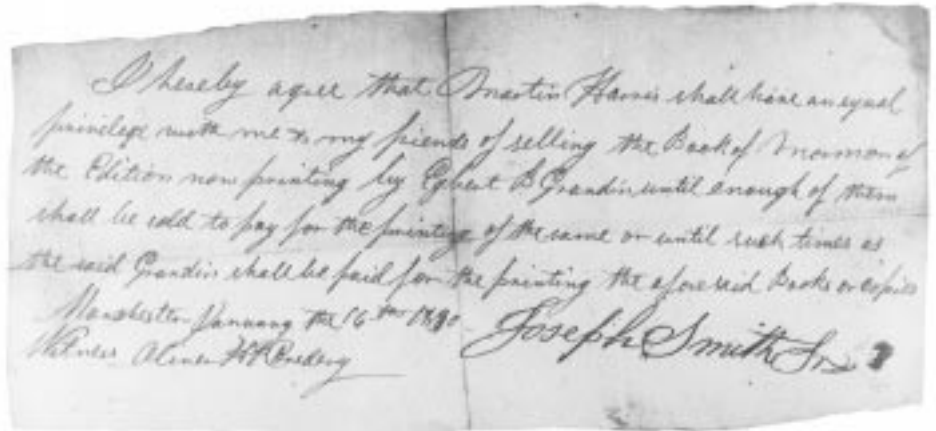 I hereby agree that Martin Harris shall have an equal
privilege with me & my friends of selling the Book of Mormon of
the Edition now printing by Egbert B Grandin until enough of them
shall be sold to pay for the printing of the same or until such times as
the said Grandin shall be paid for the printing the aforesaid Books or copies
Manchester January the 16th 1830
Joseph Smith
Witness Oliver H P Cowdery